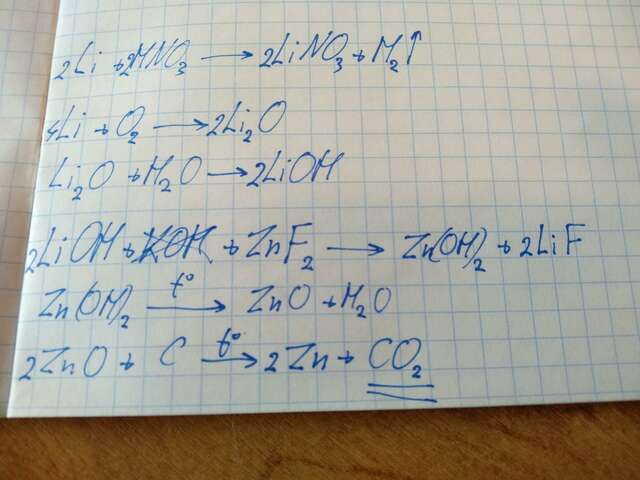 2Li + 2HNO₃ ⟶ 2LiNO₃ + H₂↑
4Li + O₂ ⟶ 2Li₂O
Li₂O + H₂O ⟶ 2LiOH
2LiOH + ~~KOH~~ + ZnF₂ ⟶ Zn(OH)₂ + 2LiF
Zn(OH)₂ —t°→ ZnO + H₂O
2ZnO + C —t°→ 2Zn + CO₂